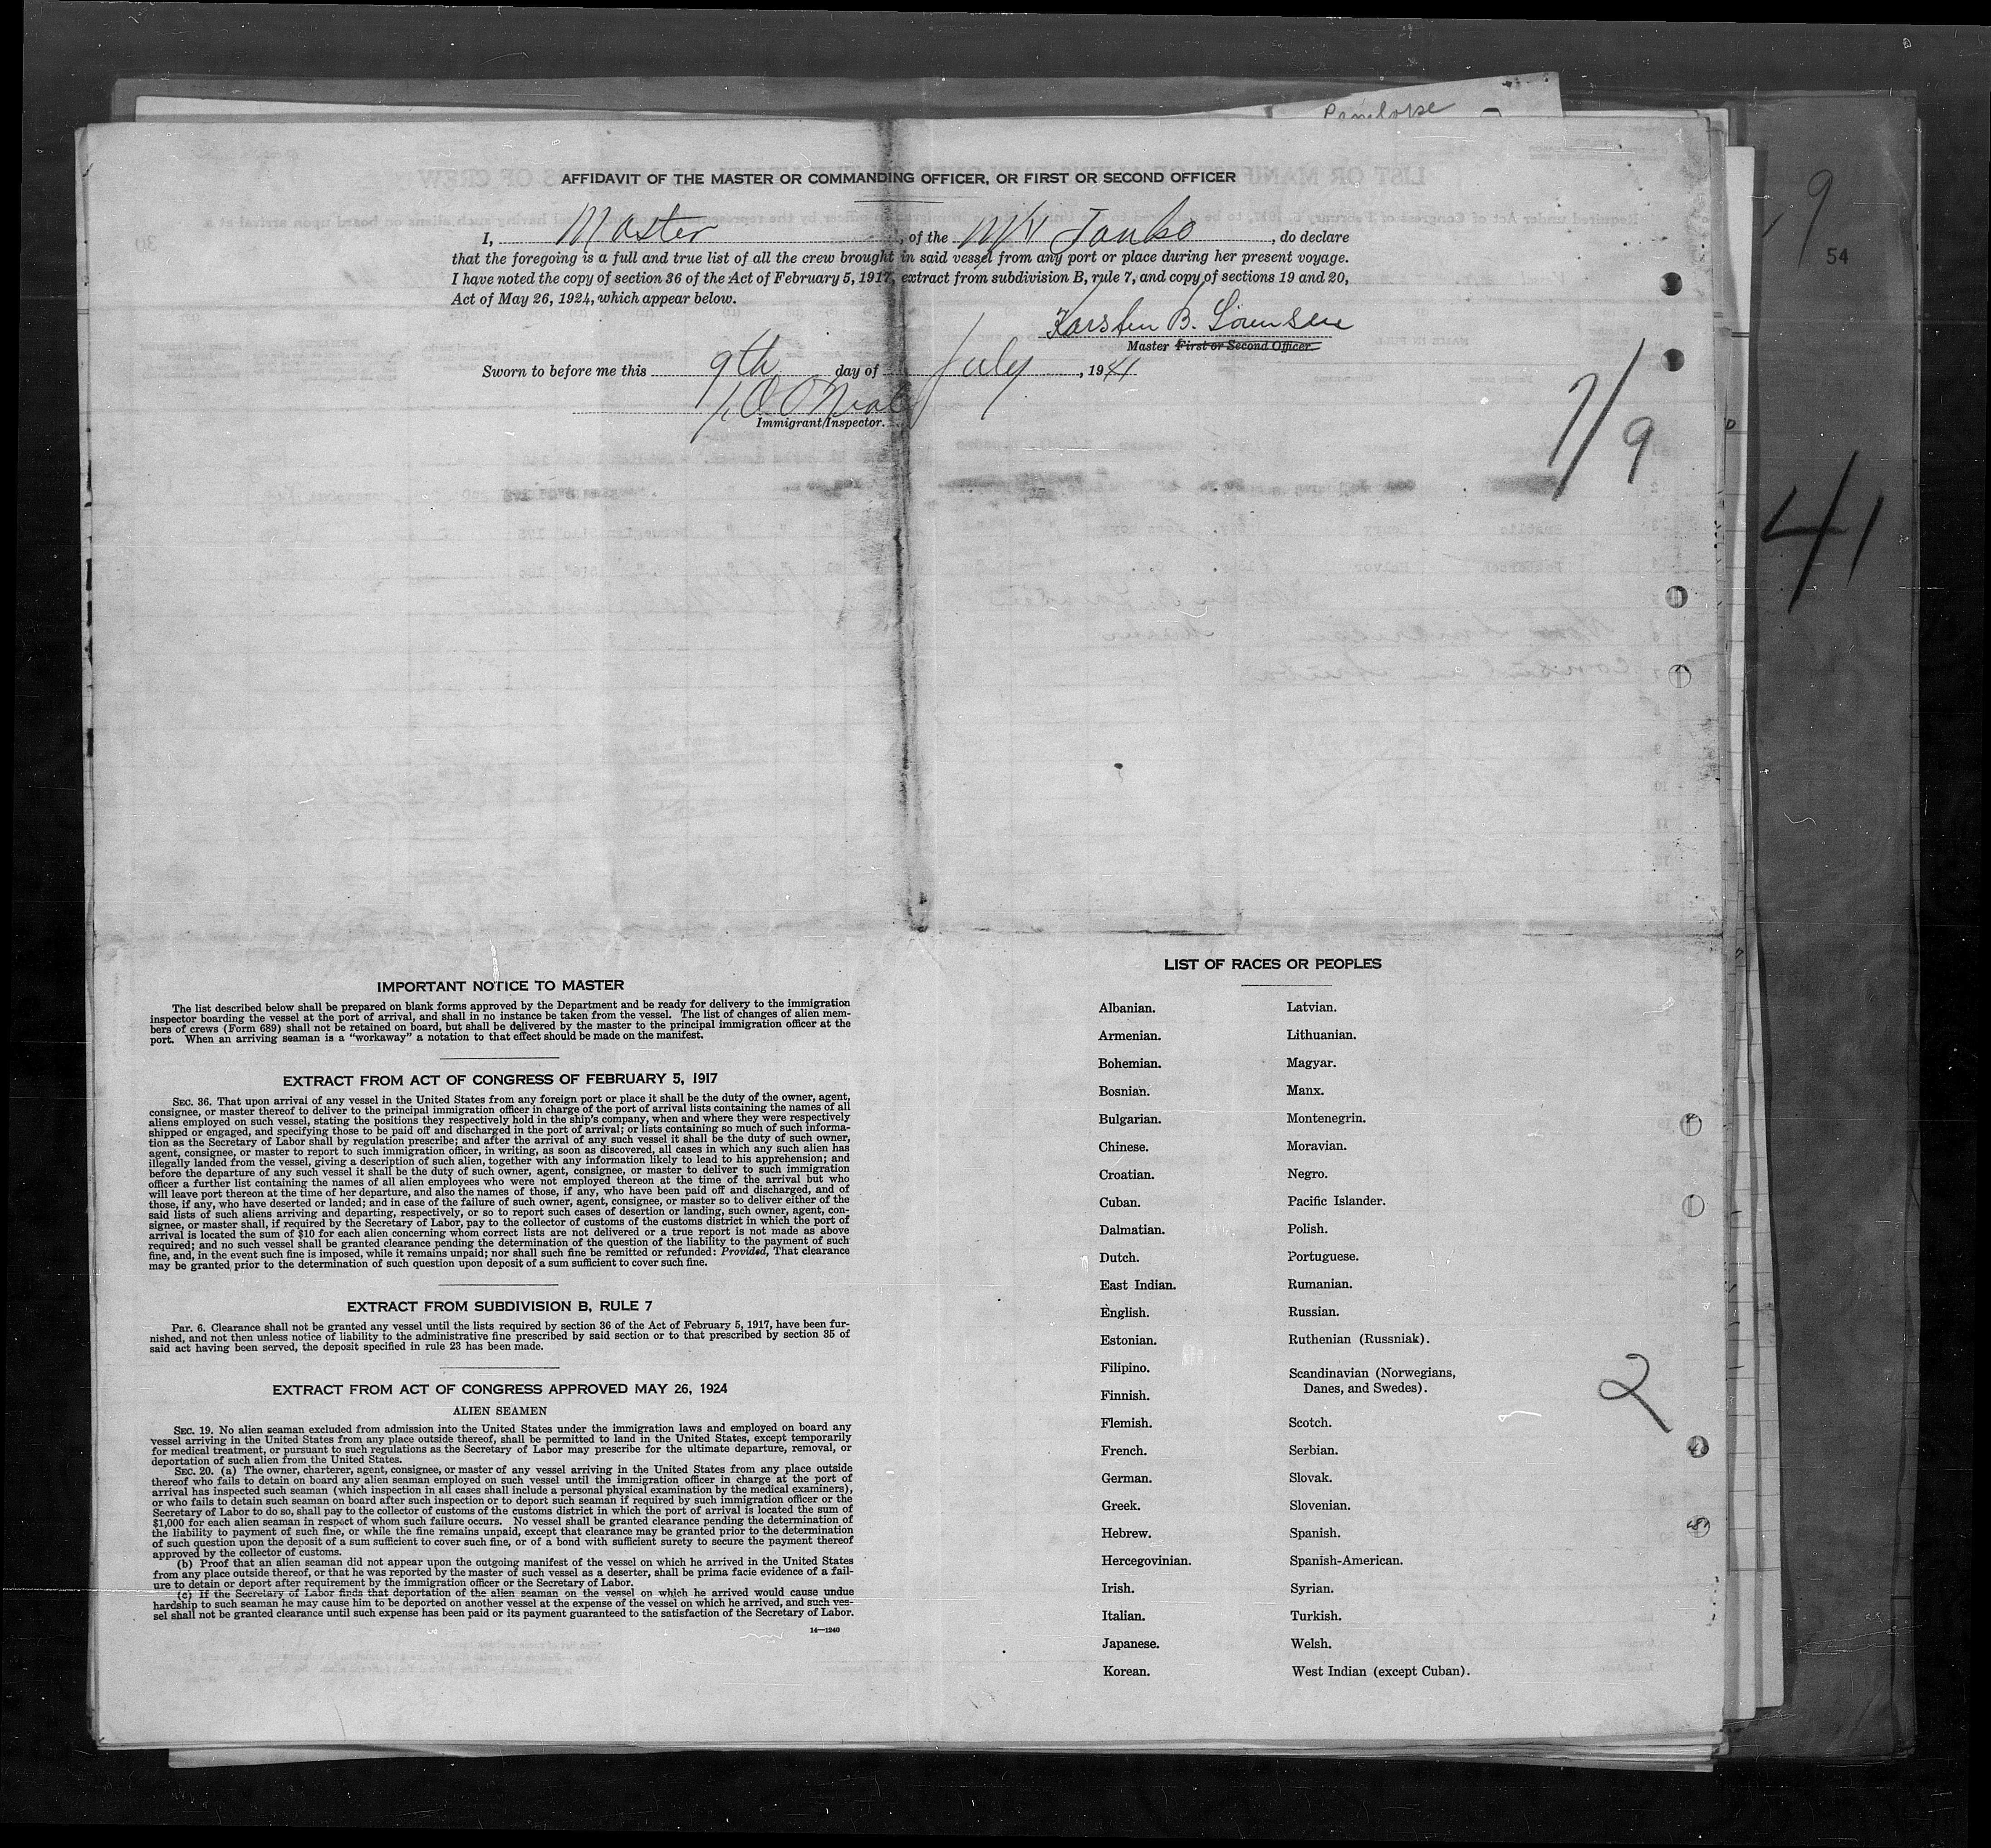 Penelope
AFFIDAVIT OF THE MASTER OR COMMANDING OFFICER, OR FIRST OR SECOND OFFICER
I, Master, of the M/V Janko, do declare
that the foregoing is a full and true list of all the crew brought in said vessel from any port or place during her present voyage.
I have noted the copy of section 36 of the Act of February 5, 1917, extract from subdivision B, rule 7, and copy of sections 19 and 20,
Act of May 26, 1924, which appear below.
Karsten B.
Master First or Second Officer
Sworn to before me this 9th day of July, 1941
Immigrant Inspector.
9
54
7/9
41
IMPORTANT NOTICE TO MASTER
The list described below shall be prepared on blank forms approved by the Department and be ready for delivery to the immigration
inspector boarding the vessel at the port of arrival, and shall in no instance be taken from the vessel. The list of changes of alien mem-
bers of crews (Form 689) shall not be retained on board, but shall be delivered by the master to the principal immigration officer at the
port. When an arriving seaman is a "workaway" a notation to that effect should be made on the manifest.
EXTRACT FROM ACT OF CONGRESS OF FEBRUARY 5, 1917
SEC. 36. That upon arrival of any vessel in the United States from any foreign port or place it shall be the duty of the owner, agent,
consignee, or master thereof to deliver to the principal immigration officer in charge of the port of arrival lists containing the names of all
aliens employed on such vessel, stating the positions they respectively hold in the ship's company, when and where they were respectively
shipped or engaged, and specifying those to be paid off and discharged in the port of arrival; or lists containing so much of such informa-
tion as the Secretary of Labor shall by regulation prescribe; and after the arrival of any such vessel it shall be the duty of such owner,
agent, consignee, or master to report to such immigration officer, in writing, as soon as discovered, all cases in which any such alien has
illegally landed from the vessel, giving a description of such alien, together with any information likely to lead to his apprehension; and
before the departure of any such vessel it shall be the duty of such owner, agent, consignee, or master to deliver to such immigration
officer a further list containing the names of all alien employees who were not employed thereon at the time of the arrival but who
will leave port thereon at the time of her departure, and also the names of those, if any, who have been paid off and discharged, and of
those, if any, who have deserted or landed; and in case of the failure of such owner, agent, consignee, or master so to deliver either of the
said lists of such aliens arriving and departing, respectively, or so to report such cases of desertion or landing, such owner, agent, con-
signee, or master shall, if required by the Secretary of Labor, pay to the collector of customs of the customs district in which the port of
arrival is located the sum of $10 for each alien concerning whom correct lists are not delivered or a true report is not made as above
required; and no such vessel shall be granted clearance pending the determination of the question of the liability to the payment of such
fine, and, in the event such fine is imposed, while it remains unpaid; nor shall such fine be remitted or refunded: Provided, That clearance
may be granted prior to the determination of such question upon deposit of a sum sufficient to cover such fine.
EXTRACT FROM SUBDIVISION B, RULE 7
Par. 6. Clearance shall not be granted any vessel until the lists required by section 36 of the Act of February 5, 1917, have been fur-
nished, and not then unless notice of liability to the administrative fine prescribed by said section or to that prescribed by section 35 of
said act having been served, the deposit specified in rule 23 has been made.
EXTRACT FROM ACT OF CONGRESS APPROVED MAY 26, 1924
ALIEN SEAMEN
SEC. 19. No alien seaman excluded from admission into the United States under the immigration laws and employed on board any
vessel arriving in the United States from any place outside thereof, shall be permitted to land in the United States, except temporarily
for medical treatment, or pursuant to such regulations as the Secretary of Labor may prescribe for the ultimate departure, removal, or
deportation of such alien from the United States.
SEC. 20. (a) The owner, charterer, agent, consignee, or master of any vessel arriving in the United States from any place outside
thereof who fails to detain on board any alien seaman employed on such vessel until the immigration officer in charge at the port of
arrival has inspected such seaman (which inspection in all cases shall include a personal physical examination by the medical examiners),
or who fails to detain such seaman on board after such inspection or to deport such seaman if required by such immigration officer or the
Secretary of Labor to do so, shall pay to the collector of customs of the customs district in which the port of arrival is located the sum of
$1,000 for each alien seaman in respect of whom such failure occurs. No vessel shall be granted clearance pending the determination of
the liability to payment of such fine, or while the fine remains unpaid, except that clearance may be granted prior to the determination
of such question upon the deposit of a sum sufficient to cover such fine, or of a bond with sufficient surety to secure the payment thereof
approved by the collector of customs.
(b) Proof that an alien seaman did not appear upon the outgoing manifest of the vessel on which he arrived in the United States
from any place outside thereof, or that he was reported by the master of such vessel as a deserter, shall be prima facie evidence of a fail-
ure to detain or deport after requirement by the immigration officer or the Secretary of Labor.
(c) If the Secretary of Labor finds that deportation of the alien seaman on the vessel on which he arrived would cause undue
hardship to such seaman he may cause him to be deported on another vessel at the expense of the vessel on which he arrived, and such ves-
sel shall not be granted clearance until such expense has been paid or its payment guaranteed to the satisfaction of the Secretary of Labor.
14—1240
LIST OF RACES OR PEOPLES
Albanian. Latvian.
Armenian. Lithuanian.
Bohemian. Magyar.
Bosnian. Manx.
Bulgarian. Montenegrin.
Chinese. Moravian.
Croatian. Negro.
Cuban. Pacific Islander.
Dalmatian. Polish.
Dutch. Portuguese.
East Indian. Rumanian.
English. Russian.
Estonian. Ruthenian (Russniak).
Filipino. Scandinavian (Norwegians,
Danes, and Swedes).
Finnish.
Flemish. Scotch.
French. Serbian.
German. Slovak.
Greek. Slovenian.
Hebrew. Spanish.
Hercegovinian. Spanish-American.
Irish. Syrian.
Italian. Turkish.
Japanese. Welsh.
Korean. West Indian (except Cuban).
2